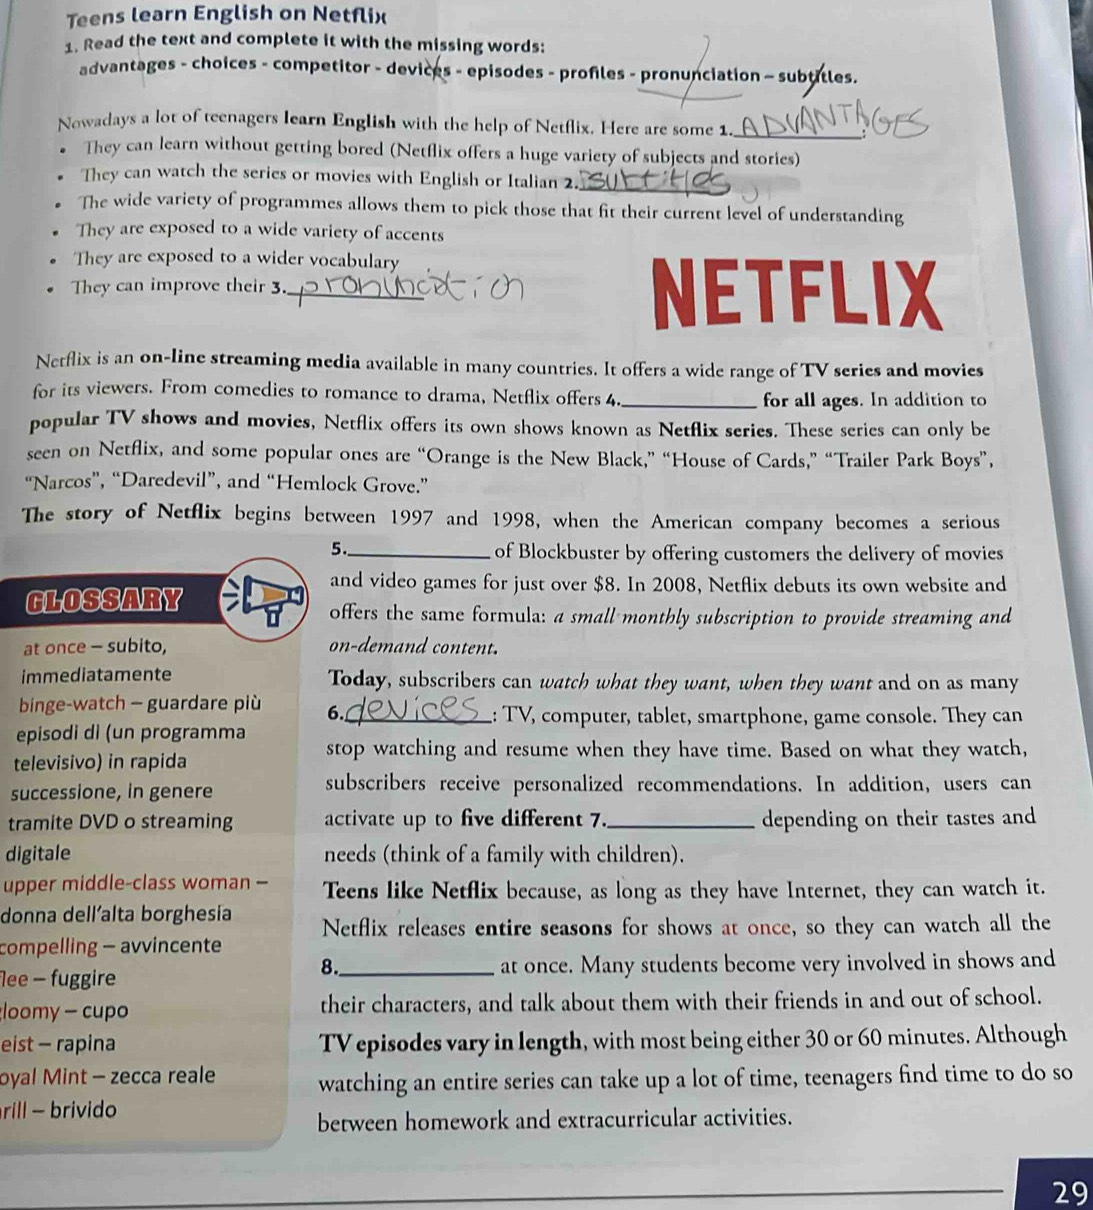 Teens learn English on Netflix
1. Read the text and complete it with the missing words:
advantages - choices - competitor - devices - episodes - profiles - pronunciation - subtitles.
Nowadays a lot of teenagers learn English with the help of Netflix. Here are some 1. ADVANTAGES:
• They can learn without getting bored (Netflix offers a huge variety of subjects and stories)
• They can watch the series or movies with English or Italian 2.
• The wide variety of programmes allows them to pick those that fit their current level of understanding
• They are exposed to a wide variety of accents
• They are exposed to a wider vocabulary
• They can improve their 3.
NETFLIX
Netflix is an on-line streaming media available in many countries. It offers a wide range of TV series and movies
for its viewers. From comedies to romance to drama, Netflix offers 4.____________ for all ages. In addition to
popular TV shows and movies, Netflix offers its own shows known as Netflix series. These series can only be
seen on Netflix, and some popular ones are “Orange is the New Black,” “House of Cards,” “Trailer Park Boys”,
“Narcos”, “Daredevil”, and “Hemlock Grove.”
The story of Netflix begins between 1997 and 1998, when the American company becomes a serious
5.____________ of Blockbuster by offering customers the delivery of movies
and video games for just over $8. In 2008, Netflix debuts its own website and
offers the same formula: a small monthly subscription to provide streaming and
on-demand content.
Today, subscribers can watch what they want, when they want and on as many
6. devices: TV, computer, tablet, smartphone, game console. They can
stop watching and resume when they have time. Based on what they watch,
subscribers receive personalized recommendations. In addition, users can
activate up to five different 7.____________ depending on their tastes and
needs (think of a family with children).
Teens like Netflix because, as long as they have Internet, they can watch it.
Netflix releases entire seasons for shows at once, so they can watch all the
8.____________ at once. Many students become very involved in shows and
their characters, and talk about them with their friends in and out of school.
TV episodes vary in length, with most being either 30 or 60 minutes. Although
watching an entire series can take up a lot of time, teenagers find time to do so
between homework and extracurricular activities.
GLOSSARY
at once – subito,
immediatamente
binge-watch – guardare più
episodi di (un programma
televisivo) in rapida
successione, in genere
tramite DVD o streaming
digitale
upper middle-class woman –
donna dell’alta borghesia
compelling – avvincente
lee – fuggire
loomy – cupo
eist – rapina
oyal Mint – zecca reale
rill – brivido
29